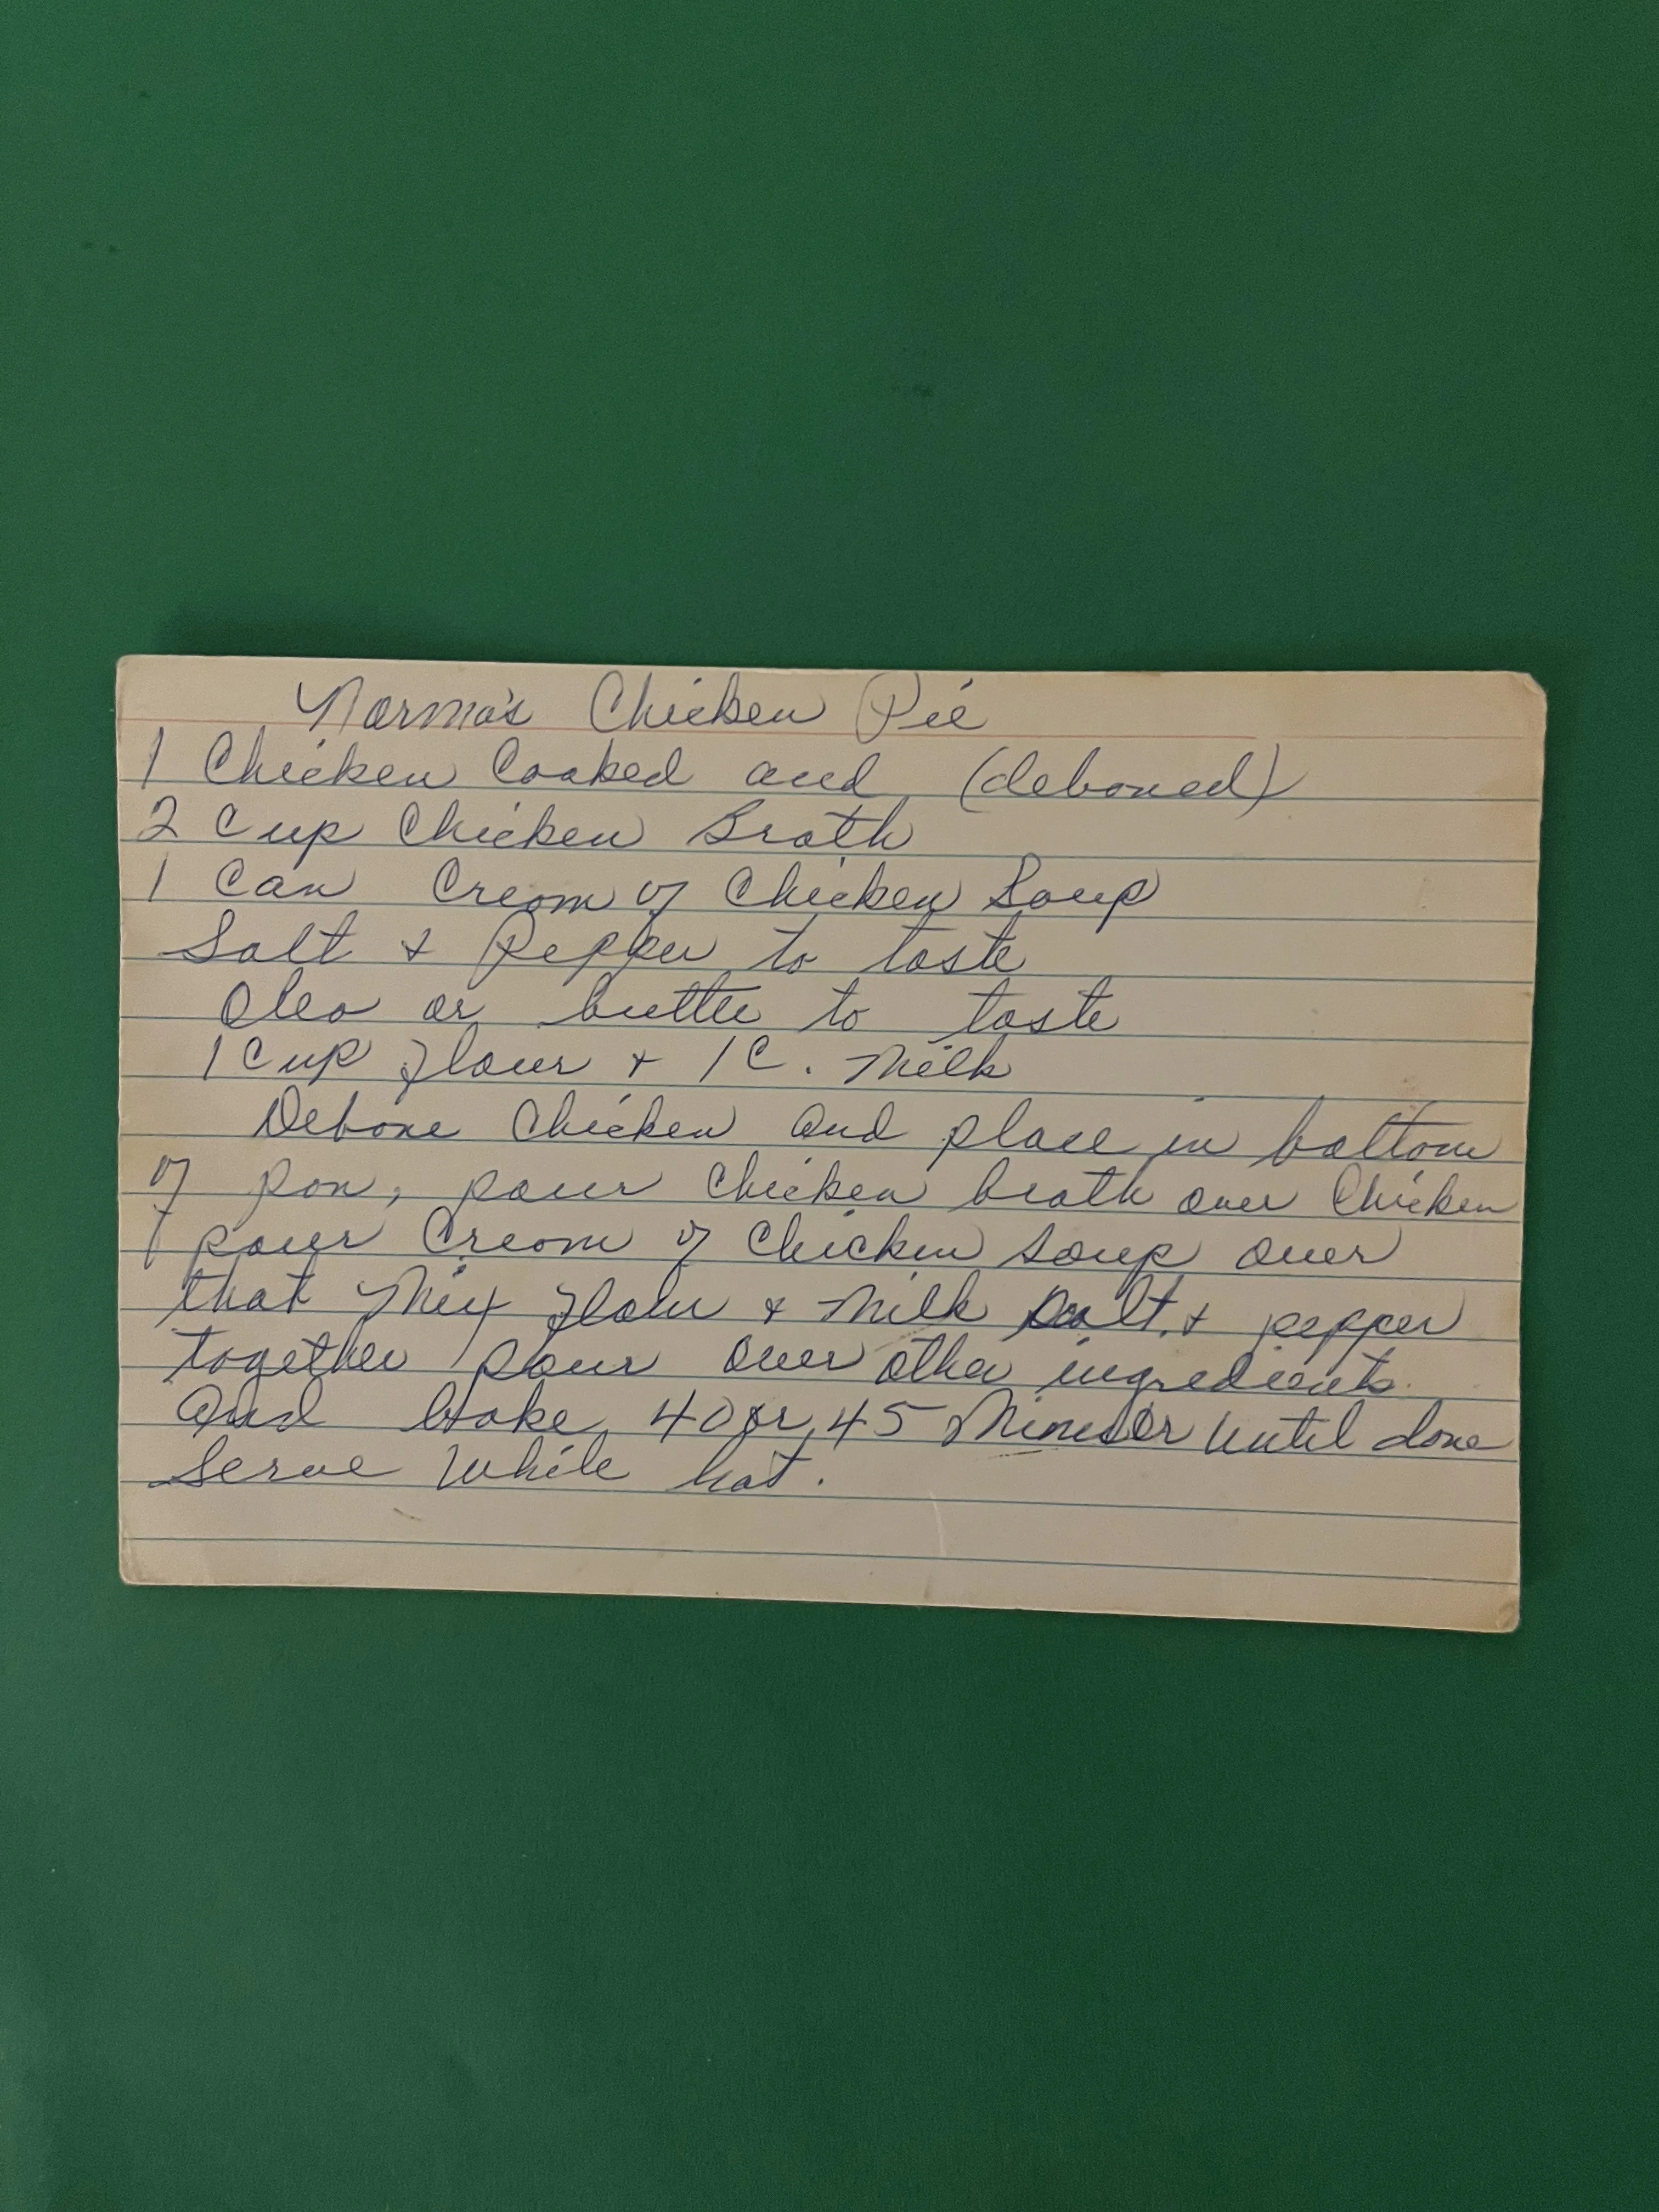 Norma's Chicken Pie
1 Chicken Cooked and (deboned)
2 Cup Chicken Broth
1 Can Cream of Chicken Soup
Salt & Pepper to taste
Oleo or butter to taste
1 Cup flour & 1 C. Milk
Debone Chicken and place in bottom
of pan, pour Chicken broth over Chicken
pour Cream of Chicken soup over
that Mix flour & Milk salt & pepper
together pour over other ingredients
and bake 40 or 45 until done
Serve While hot.